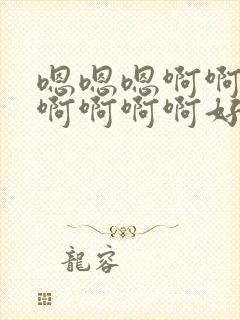 嗯嗯嗯啊啊
啊啊啊啊好
龍容